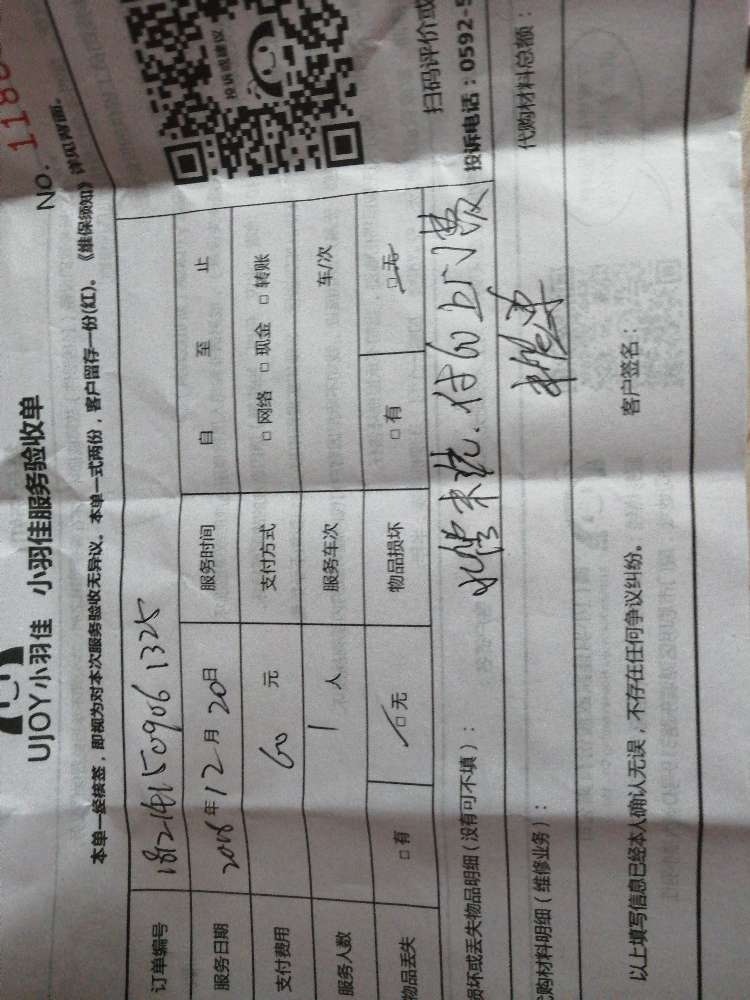 No. 118
UJOY小羽佳 小羽佳服务验收单
本单一经接签，即视为对本次服务验收无异议。本单一式两份，客户留存一份(红)。《维保须知》详见背面。
订单编号
服务日期 2018年12月20日 服务时间 自 至 止
支付费用 60 元 支付方式 □ 网络 □ 现金 □ 转账
服务人数 1 人 服务车次 车/次
物品丢失 □ 有 □ 无 物品损坏 □ 有 □ 无
损坏或丢失物品明细（没有可不填）：
付60上门费
购材料明细（维修业务）：
代购材料总额：
以上填写信息已经本人确认无误，不存在任何争议纠纷。
客户签名：
投诉或建议
扫码评价或
投诉电话：0592-5